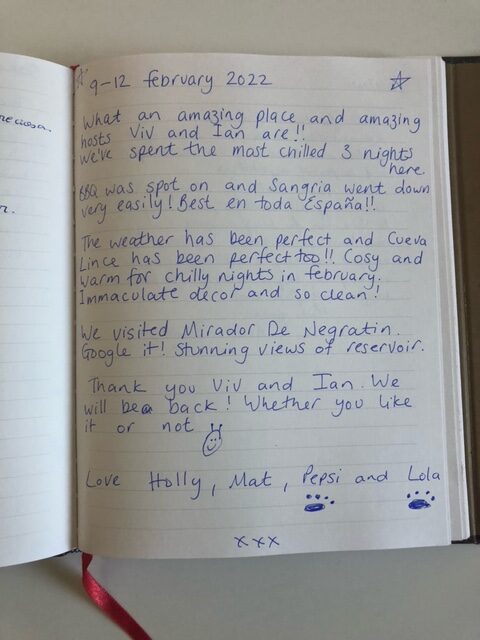 reciosa.
r.
9-12 february 2022
What an amazing place and amazing
hosts Viv and Ian are!!
We've spent the most chilled 3 nights
here.
BBQ was spot on and Sangria went down
very easily! Best en toda España!!
The weather has been perfect and Cueva
Lince has been perfect too!! Cosy and
warm for chilly nights in february.
Immaculate decor and so clean!
We visited Mirador De Negratin.
Google it! Stunning views of reservoir.
Thank you Viv and Ian. We
will be back! Whether you like
it or not
Love Holly, Mat, Pepsi and Lola
xxx